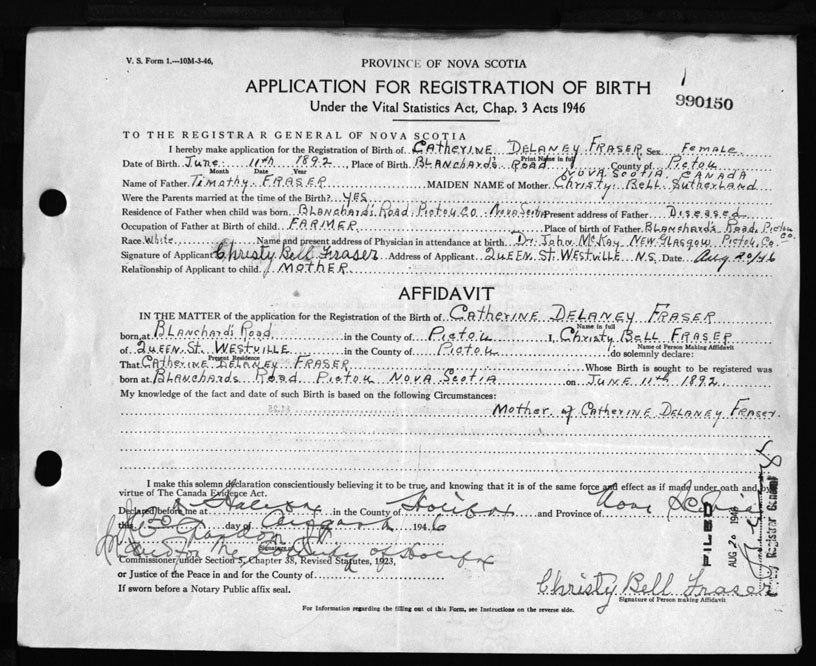 V. S. Form 1.—10M-3-46,
PROVINCE OF NOVA SCOTIA
APPLICATION FOR REGISTRATION OF BIRTH
Under the Vital Statistics Act, Chap. 3 Acts 1946
990150
TO THE REGISTRAR GENERAL OF NOVA SCOTIA
I hereby make application for the Registration of Birth of Catherine Delaney Fraser Sex Female
Print Name in full
Date of Birth June 11th 1892, Place of Birth Blanchard's Road County of Pictou
Month Date Year
Nova Scotia, Canada
Name of Father Timothy Fraser MAIDEN NAME of Mother Christy Bell Sutherland
Were the Parents married at the time of the Birth? Yes
Residence of Father when child was born Blanchard's Road Pictou Co Nova Scotia Present address of Father Diseased
Occupation of Father at Birth of child Farmer Place of birth of Father Blanchard's Road, Pictou Co.
Race White, Name and present address of Physician in attendance at birth Dr. John McKay New Glasgow Pictou Co.
Signature of Applicant Christy Bell Fraser Address of Applicant Queen St. Westville N.S. Date Aug 20/46
Relationship of Applicant to child Mother
AFFIDAVIT
IN THE MATTER of the application for the Registration of the Birth of Catherine Delaney Fraser
Name in full
born at Blanchard's Road in the County of Pictou I, Christy Bell Fraser
Name of Person Making Affidavit
of Queen St. Westville in the County of Pictou do solemnly declare:
Present Residence
That Catherine Delaney Fraser Whose Birth is sought to be registered was
born at Blanchards Road Pictou Nova Scotia on June 11th 1892
My knowledge of the fact and date of such Birth is based on the following Circumstances:
Mother of Catherine Delaney Fraser
I make this solemn declaration conscientiously believing it to be true, and knowing that it is of the same force and effect as if made under oath and by
virtue of The Canada Evidence Act.
Declared before me at Halifax in the County of Halifax and Province of Nova Scotia
this day of August 1946
and for the County of Halifax
Commissioner under Section 5, Chapter 38, Revised Statutes, 1923,
or Justice of the Peace in and for the County of
If sworn before a Notary Public affix seal.
Christy Bell Fraser
Signature of Person making Affidavit
FILED
AUG 20 1946
Registrar General
For Information regarding the filling out of this Form, see Instructions on the reverse side.